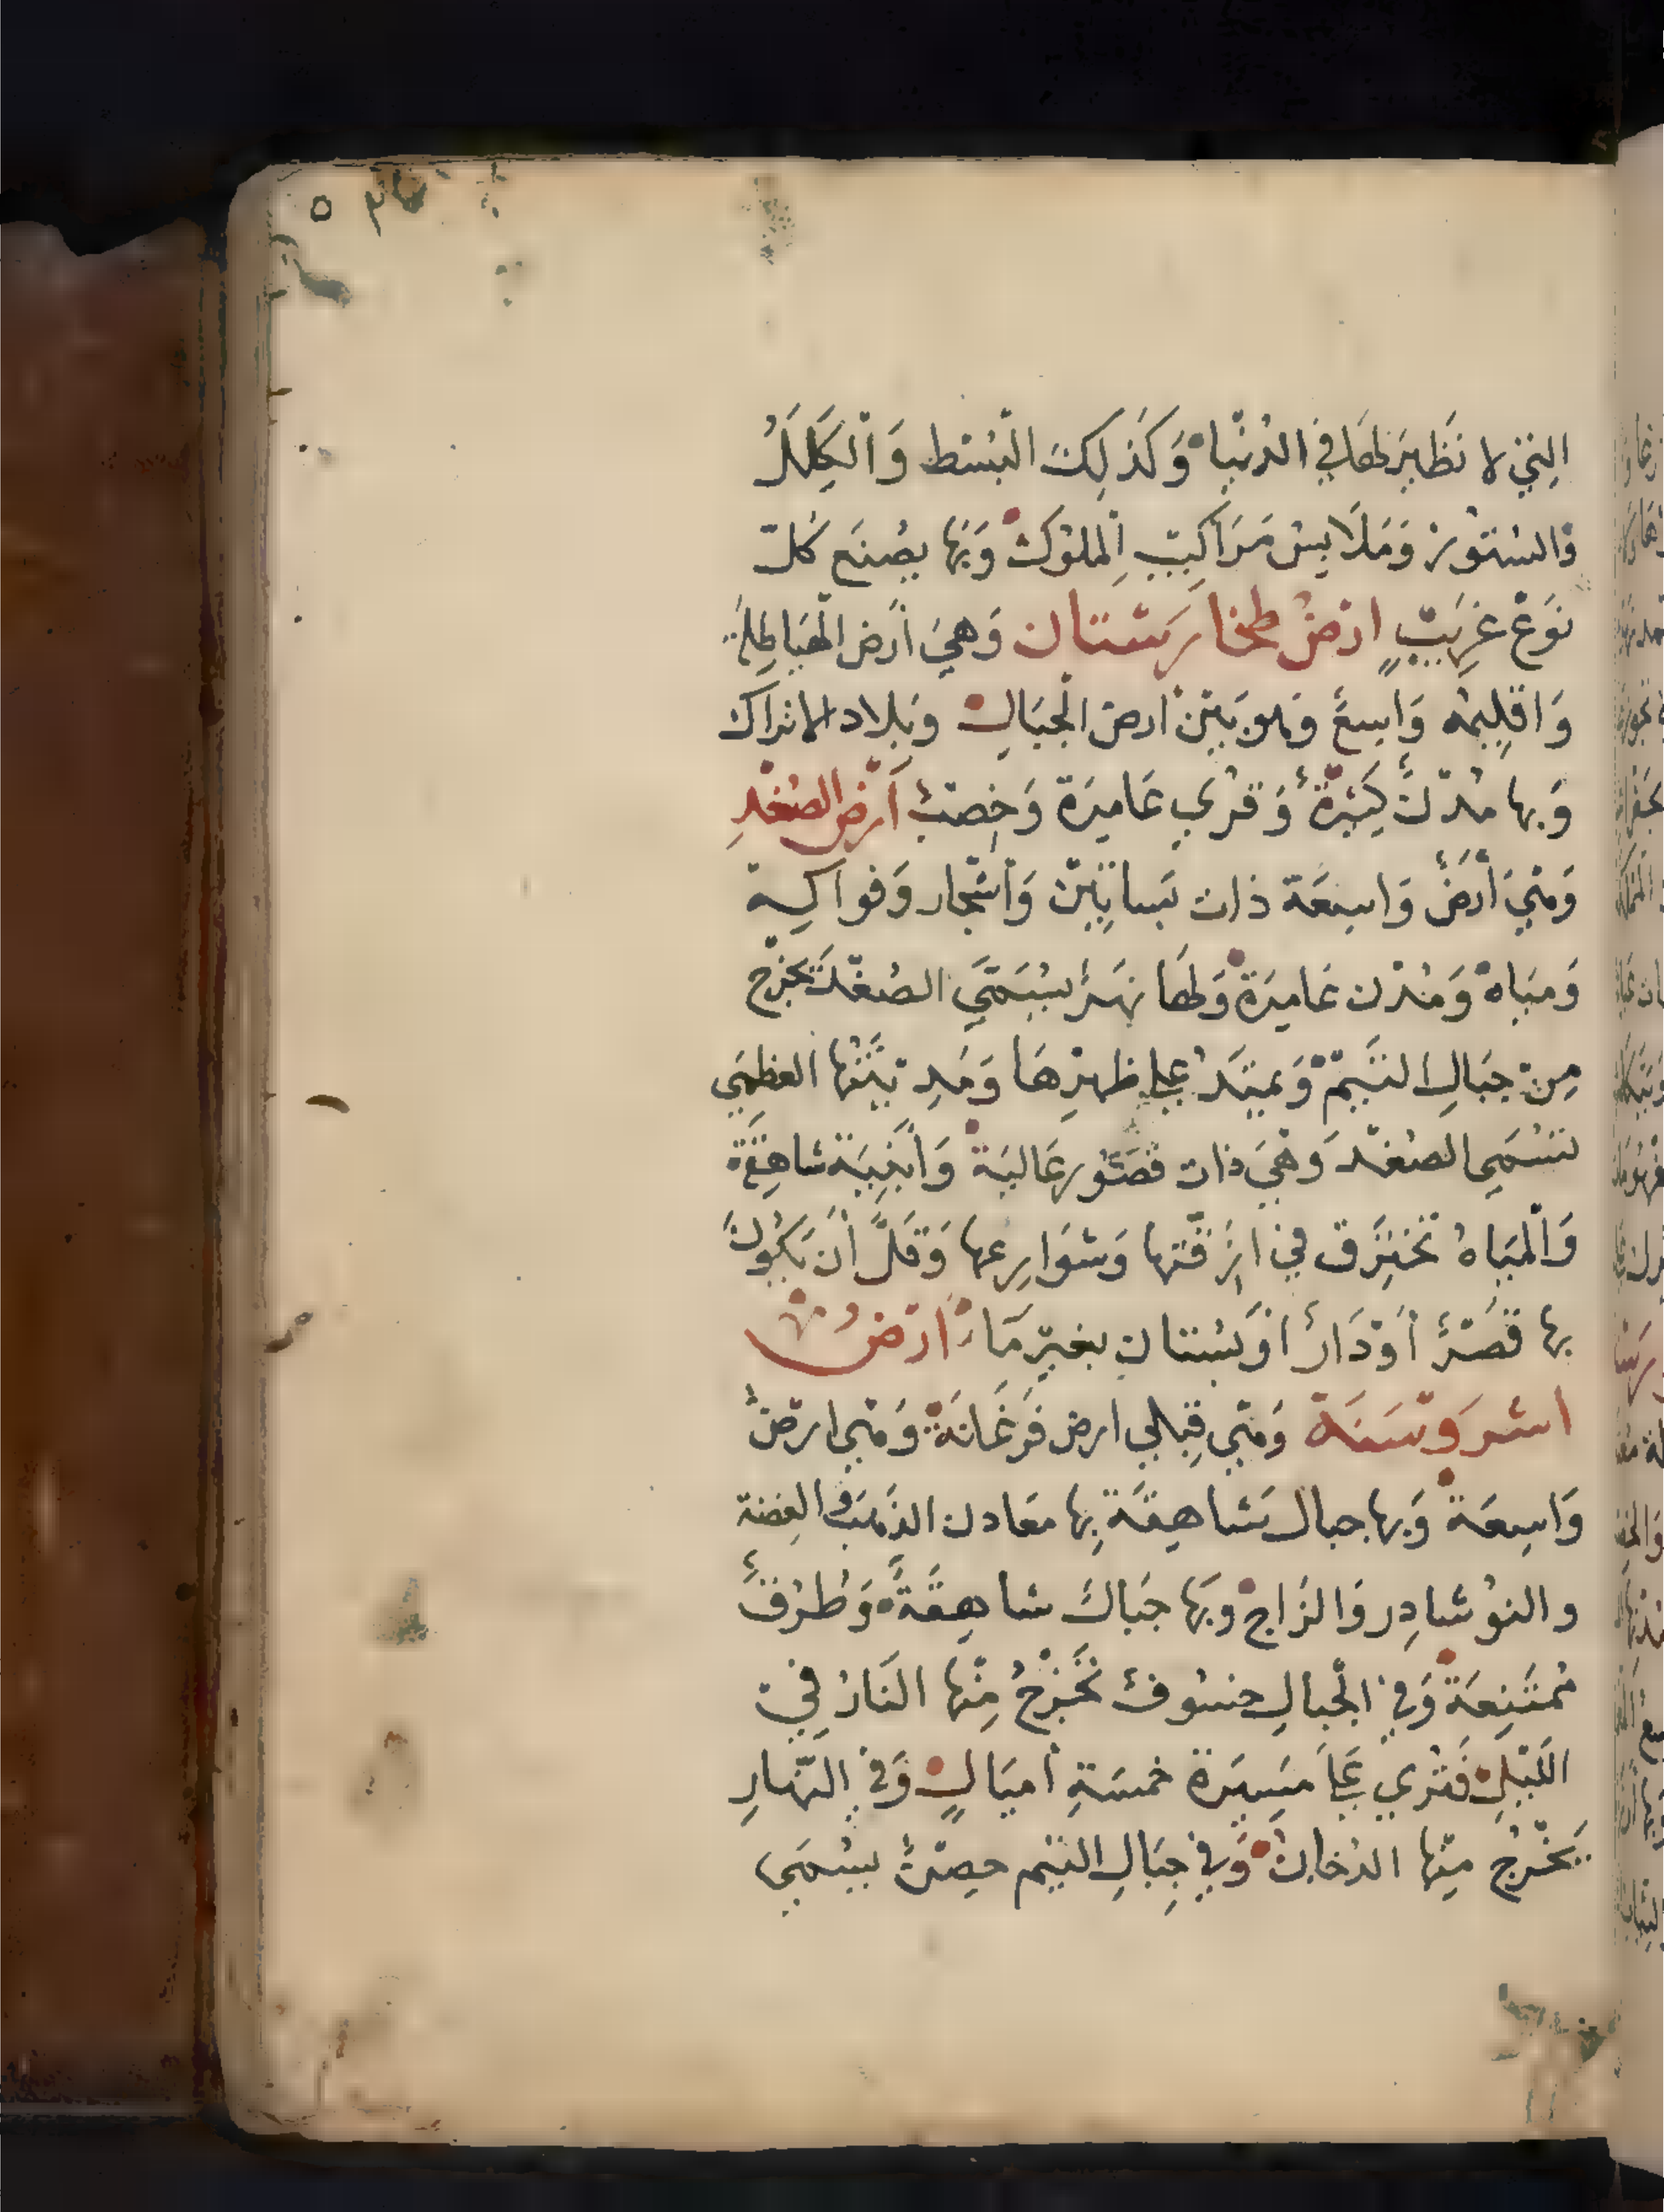 التي لا نظير لها في الدنيا وكذلك البسط والكلل
والستور وملابس مراكب الملوك وبها يصنع كل
نوع غريب ارض طخارستان وهي أرض الهياطلة
واقليمه واسع وهو بين ارض الجبال وبلاد الاتراك
وبها مدن كثيرة وقرى عامرة وخصب أرض الصغد
وهي أرض واسعة ذات بساتين وأشجار وفواكه
ومياه ومدن عامرة ولها نهر يسمى الصغد يخرج
من جبال البتم ويمتد على ظهرها ومدينتها العظمى
تسمى الصغد وهي ذات قصور عالية وأبنية شاهقة
والمياه تخترق في ازقتها وشوارعها وقل أن يكون
بها قصر أو دار أو بستان بغير ماء ارض
اشروسنة وهي قبلي ارض فرغانة وهي ارض
واسعة وبها جبال شاهقة بها معادن الذهب والفضة
والنوشادر والزاج وبها جبال شاهقة وطرق
ممتنعة وفي الجبال خسوف تخرج منها النار في
الليل فترى على مسيرة خمسة أميال وفي النهار
يخرج منها الدخان وفي جبال البتم حصن يسمى